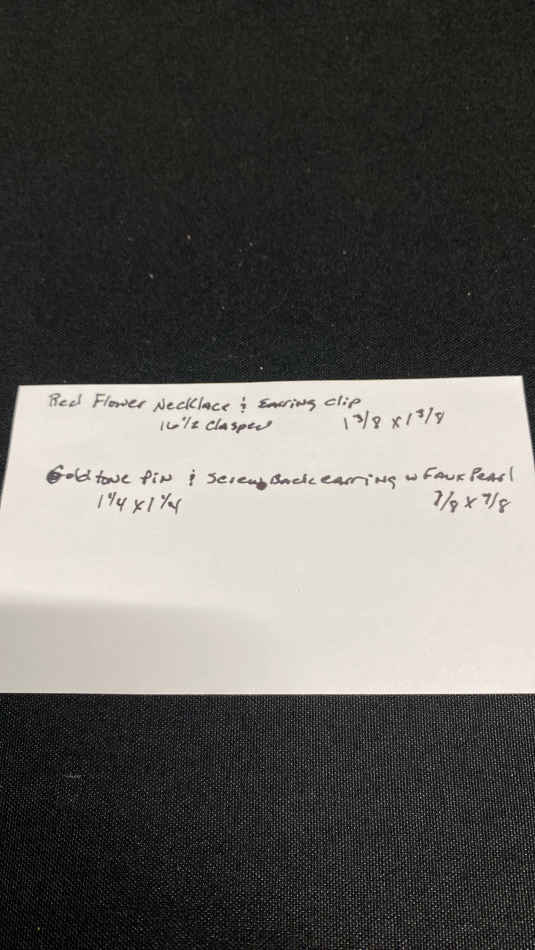 Red Flower Necklace & Earring clip
16 1/2 clasped 1 3/8 x 1 3/8
Gold tone Pin & Screw Back earring w Faux Pearl
1 1/4 x 1 1/4 7/8 x 7/8